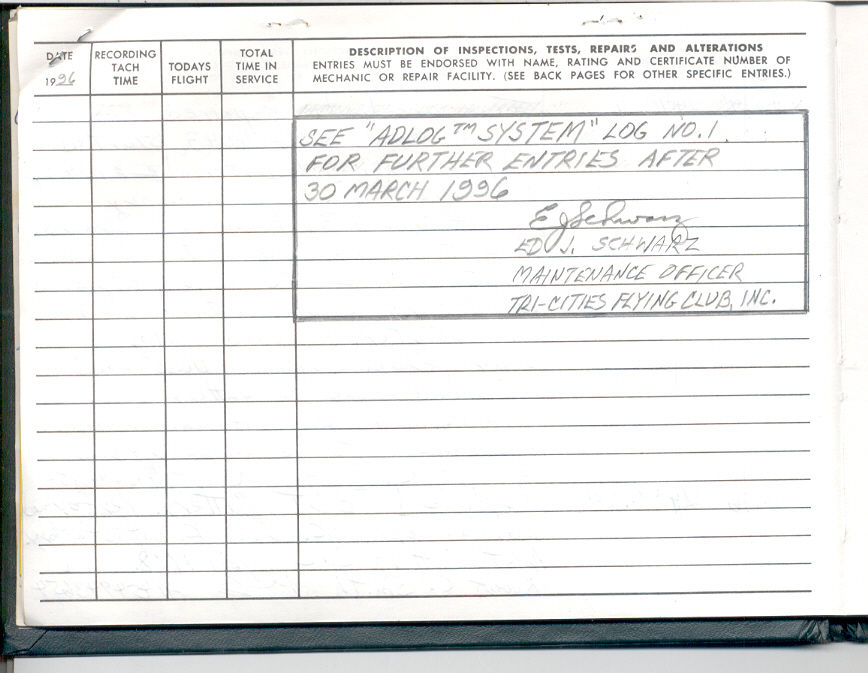 DATE
1996
RECORDING
TACH
TIME
TODAYS
FLIGHT
TOTAL
TIME IN
SERVICE
DESCRIPTION OF INSPECTIONS, TESTS, REPAIRS AND ALTERATIONS
ENTRIES MUST BE ENDORSED WITH NAME, RATING AND CERTIFICATE NUMBER OF
MECHANIC OR REPAIR FACILITY. (SEE BACK PAGES FOR OTHER SPECIFIC ENTRIES.)
SEE "ADLOG™ SYSTEM" LOG NO. 1
FOR FURTHER ENTRIES AFTER
30 MARCH 1996
E J Schwarz
ED J. SCHWARZ
MAINTENANCE OFFICER
TRI-CITIES FLYING CLUB, INC.